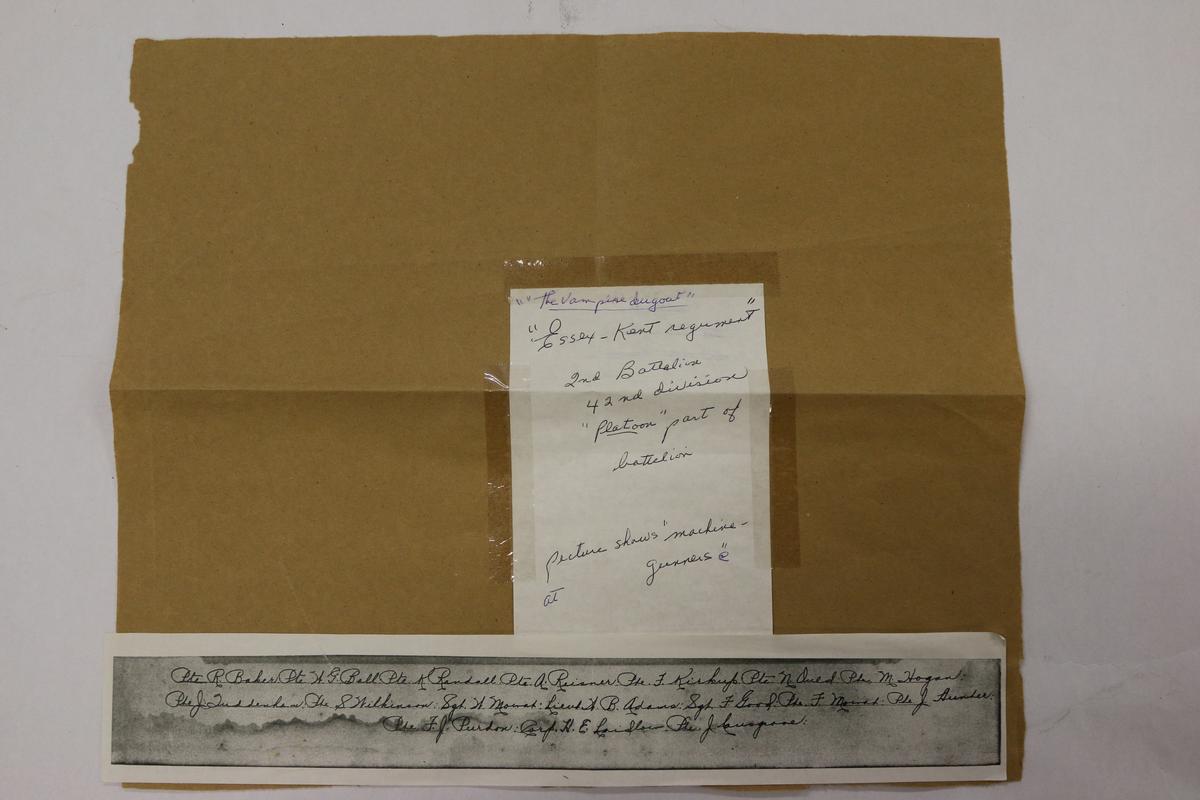 ""The Vampire dugout"
"Essex - Kent regument"
2nd Battalion
42nd division
"Platoon" part of
battelion
picture shows "machine-
gunners" @
at
Pte R. Baker. Pte. H. G. Ball. Pte. K. Rendall. Pte. A. Reisner. Pte. F. Kirkup. Pte. N. Pte. M. Hogan.
Pte J. Tuddenham. Pte. S. Wilkinson. Sgt. H. Mowat. Lieut H. B. Adams. Sgt. F. Good. Pte. F. Mowat. Pte J.
Pte. F. J. Purdon. Corp. H. E. Laidlaw. Pte. J.